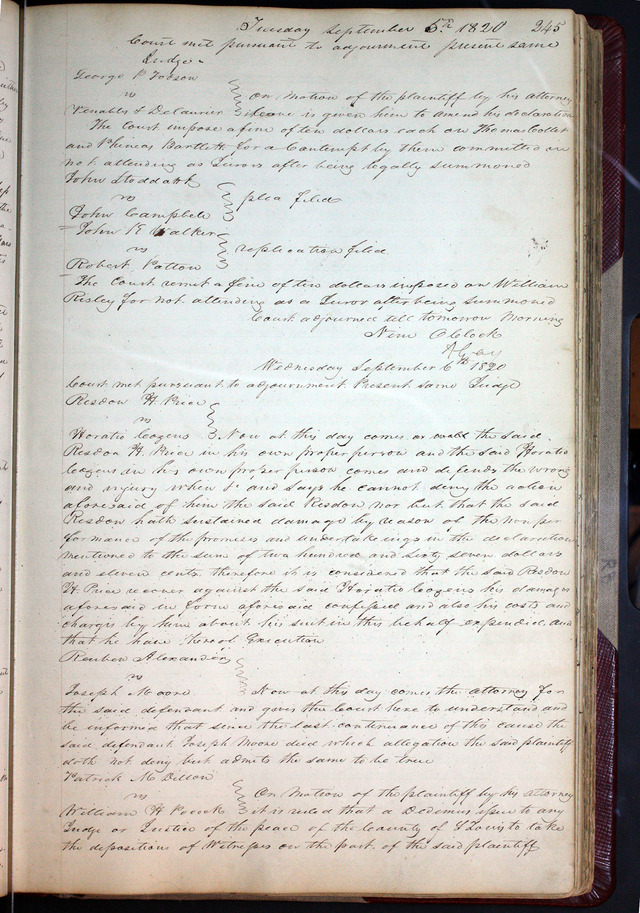 Tuesday September 5th 1820 245
Court met pursuant to adjournment present same
Judge
George P Todson
vs
Venables & Delaurier } On Motion of the plaintiff by his attorney
leave is given him to amend his declaration
The Court impose a fine of ten dollars each on Thomas
and Phineas Bartlett for a Contempt by them committed in
not attending as Jurors after being legally summoned
John Stoddart
vs } plea filed
John Campbell
John K Walker
vs } replication filed
Robert Patton
The Court remit a fine of ten dollars imposed on William
Risley for not attending as a Juror after being summoned
Court adjourned till tomorrow Morning
Nine OClock
Wednesday September 6th 1820
Court met pursuant to adjournment Present same Judge
Resdon H. Price
vs
Horatio Cozens } Now at this day comes as well the said
Resdon H. Price in his own proper person and the said Horatio
Cozens in his own proper person comes and defends the wrong
and injury when &c and says he cannot deny the action
aforesaid of him the said Risdon nor but that the said
Resdon hath sustained damage by reason of the non per
formance of the promises and undertakings in the declaration
mentioned to the sum of two hundred and sixty seven dollars
and eleven cents therefore it is considered that the said Resdon
H. Price recover against the said Horatio Cozens his damages
aforesaid in form aforesaid confessed and also his costs and
charges by him about his suit in this behalf expended and
that he have thereof Execution
Reuben Alexander
vs
Joseph Moore } Now at this day comes the attorney for
the said defendant and gives the Court here to understand and
be informed that since the last continuance of this cause the
said defendant Joseph Moore died which allegation the said plaintiff
doth not deny but admits the same to be true
Patrick M Dillon
vs } On Motion of the plaintiff by his attorney
William H Pocock } it is ruled that a Dedimus issue to any
Judge or Justice of the peace of the County of St Louis to take
the deposition of Witnesses on the part of the said plaintiff